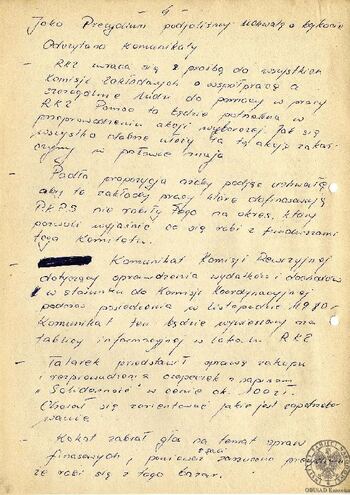 - 6 -
Jako Prezydium podjęliśmy uchwałę o
Odczytano Komunikaty
- RKZ zwraca się z prośbą do wszystkich
Komisji Zakładowych o współpracę a
szczególnie ludzi do pomocy w pracy
RKZ Pomoc ta będzie potrzebna w
przeprowadzeniu akcji wyborczej. Jak się
wszystko dobrze ułoży to tą akcję zakoń-
czymy w połowie maja
- Padła propozycja żeby podjąć uchwałę
aby te zakłady pracy które dofinansowują
P.K.P.S nie robiły tego na okres, który
pozwoli wyjaśnić co się robi z funduszami
tego Komitetu.
- Komunikat Komisji Rewizyjnej
dotyczący sprawdzenia wydatków i dochodów
w stosunku do Komisji Koordynacyjnej
podczas posiedzenia w listopadzie
Komunikat ten będzie wywieszony na
tablicy informacyjnej w lokalu RKZ
- Tatarek przedstawił sprawę zakupu
rozprowadzenia czapeczek z napisem
"Solidarność" w cenie ok. 100 zł.
Chciał się zorientować jakie jest zapotrzebo-
wanie
- zabrał głos na temat spraw
finansowych, ponieważ
że robi się z tego bazar.